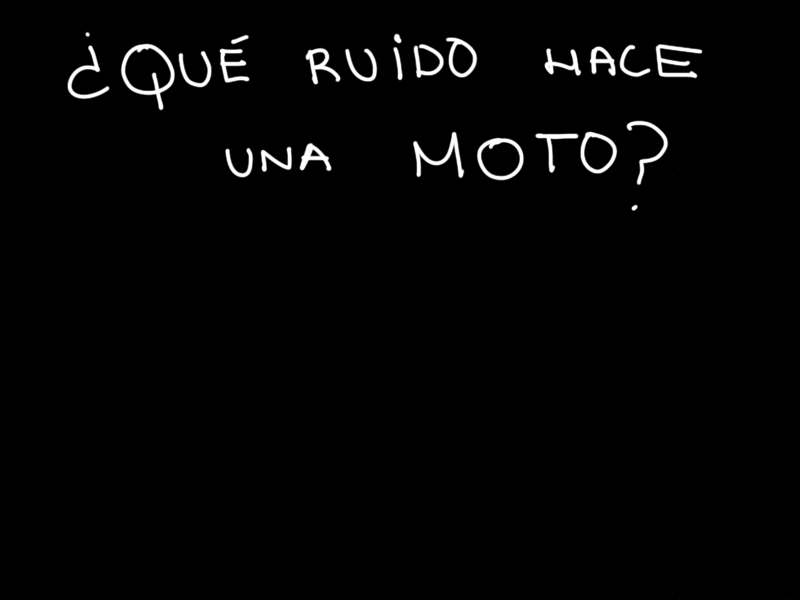 ¿QUÉ RUIDO HACE
UNA MOTO?